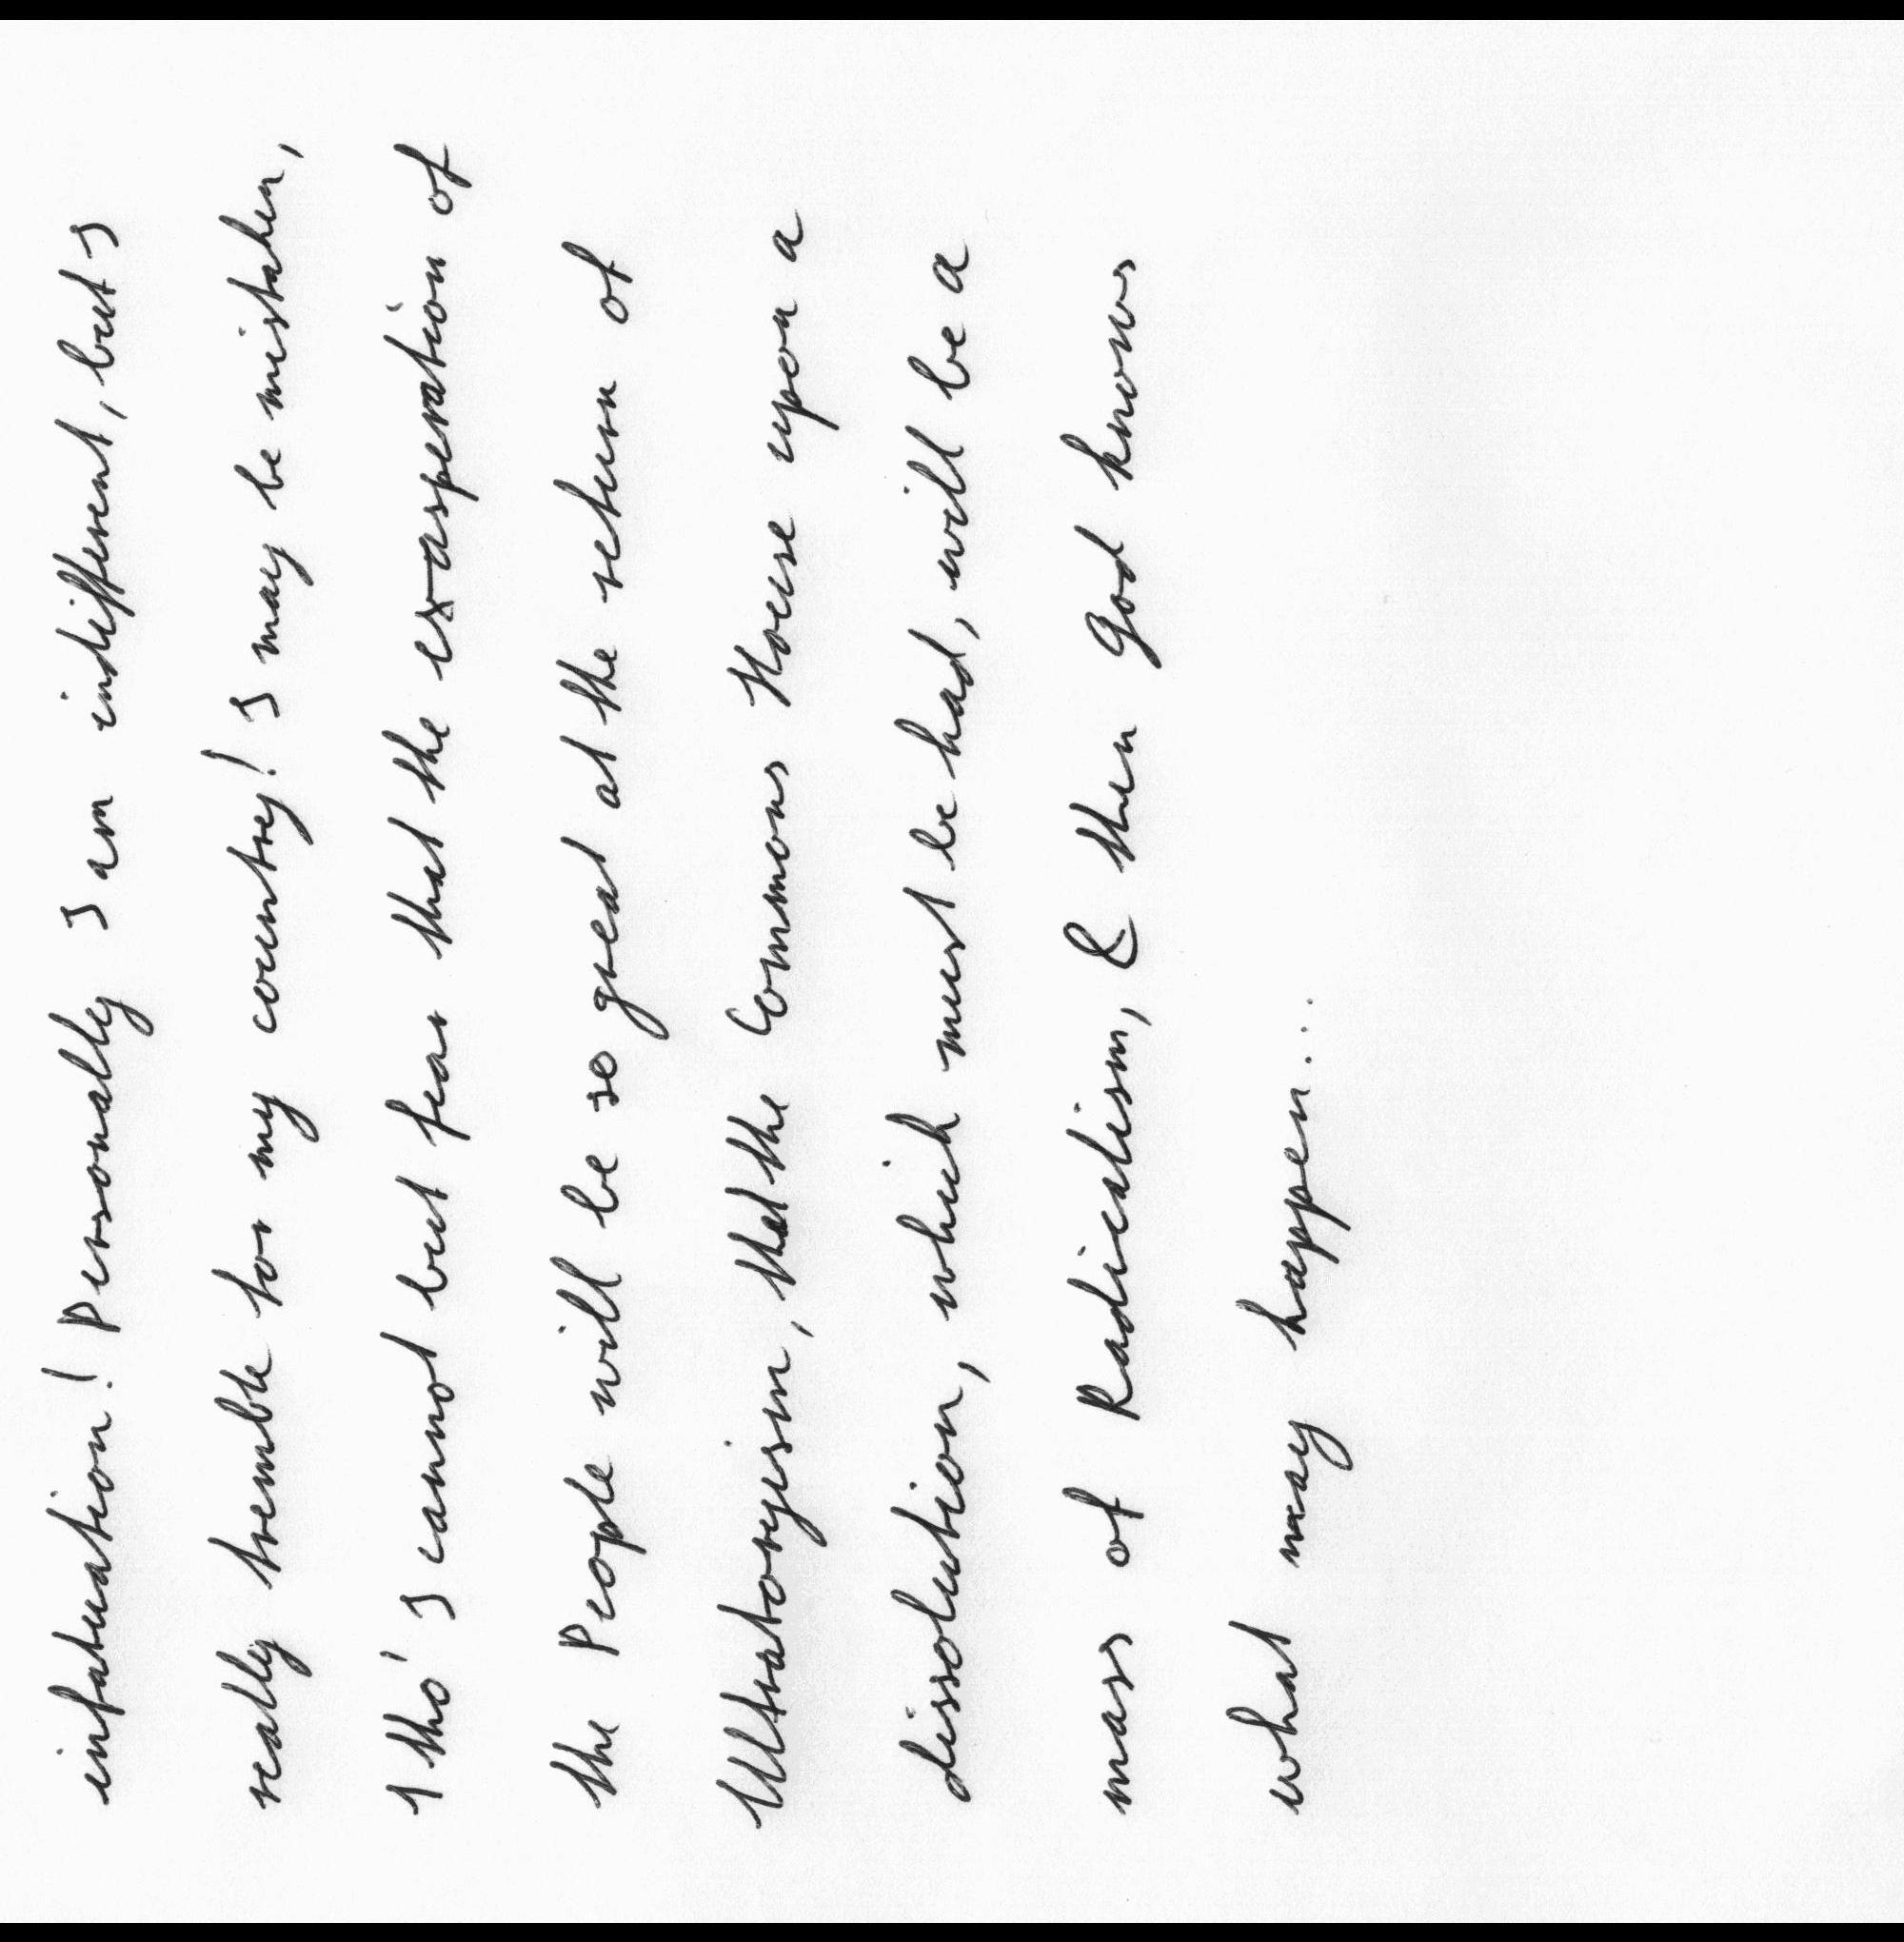 infatuation! Personally I am indifferent, but I
really tremble for my country! I may be mistaken,
1 tho' I cannot but fear that the exasperation of
the People will be so great at the return of
Ultratoryism, that the Commons House upon a
dissolution, which must be had, will be a
mass of Radicalism, & then God knows
what may happen...